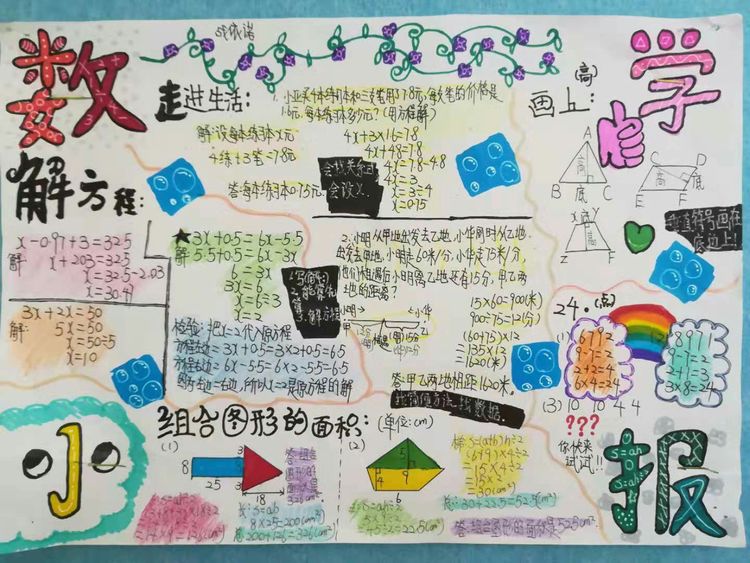 数
学
小
报
战依诺
走进生活:
1. 小亚买4本练习本和三支笔用了7.8元,每支笔的价格是
1.6元,每本练习本多少元?(用方程解)
解:设每本练习本x元
4练+3笔=7.8元
4x+4.8=7.8
4x=7.8-4.8
4x=3
x=3÷4
x=0.75
答:每本练习本0.75元
会找关系式
会设x
解方程:
解:
x=10
3x+2x=50
5x=50
x=50÷5
★3x+0.5=6x-5.5
解 5.5+0.5=6x-3x
6=3x
3x=6
x=6÷3
x=2
检验:把x=2代入原方程
方程左边=3x+0.5=3×2+0.5=6.5
方程右边=6x-5.5=6×2-5.5=6.5
左边=右边,所以x=2是原方程的解
3.解方程
2.小明从甲地出发去乙地,小华同时从乙地
出发去甲地,小明走60米/分,小华走75米/分,
他们相遇后小明离乙地还有15分,甲乙两
地的距离?
15×60=900(米)
900÷75=12(分)
(60+75)×12
=135×12
=1620(米)
答:甲乙两地相距1620米。
找数据
画上:(高)
A
B 底 C
高
C D
E 底 F
高
X 底 Y
Z F
高
24.(点)
(1) 6 7 9 2
9-7=2
2+2=4
6×4=24
(2) 8 9 1 7
9-7=2
2+1=3
3×8=24
(3) 10 10 4 4
???
你快来
试试!!
组合图形的面积:(单位:cm)
(1)
8
25
3
3
18
长:S=ab
8×25=200(cm²)
总200+126=326(cm²)
(2)
4
5
9
6
梯:S=(a+b)h÷2
(6+9)×4÷2
=15×4÷2
=30(cm²)
总:30+22.5=52.5(cm²)
答:组合图形的面积是52.5cm²